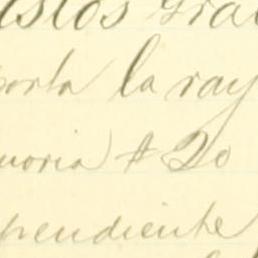 istos gra
porta la ray
moria # 20
pendiente